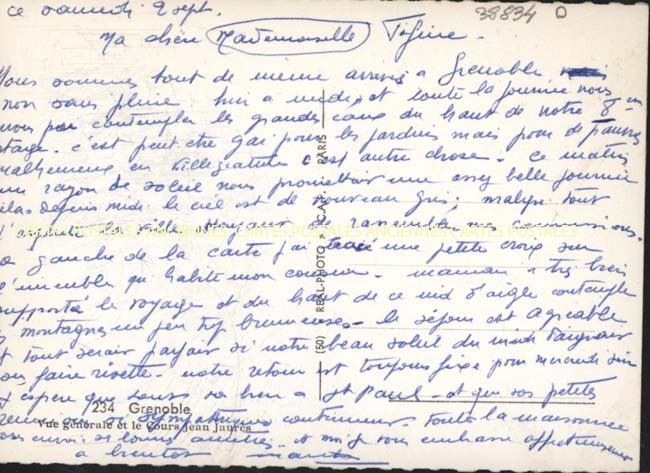 ce samedi 2 sept. 38834
Ma chère Mademoiselle
Nous sommes tout de même arrivés à Grenoble, mais
non sans pluie hier à midi, et toute la journée nous
contempler les grandes eaux du haut de notre 8 em
étage. c'est peut-être gai pour les jardins mais pour de pauvres
malheureux en villégiature c'est autre chose. ce matin
un rayon de soleil nous promettait une assez belle journée
hélas depuis midi le ciel est de nouveau gris; malgré tout
l'aspect de la ville
à gauche de la carte j'ai tracé une petite croix sur
l'immeuble qu'habite mon cousin. maman a très bien
supporté le voyage et du haut de ce nid d'aigle contemple
les montagnes un peu trop brumeuses. le séjour est agréable
et tout serait parfait si notre beau soleil du midi daignait
nous faire risette. notre retour est toujours fixé pour mercredi
j'espère que tout va bien à St Paul. et que vos petites
continuent toute la maisonnée
vous envoie et moi je vous embrasse affectueusement
à bientôt
CARTES POSTALES ANCIENNES CARTES POSTALES
(50) REAL-PHOTO CAP PARIS
234 Grenoble
Vue générale et le Cours Jean Jaurès